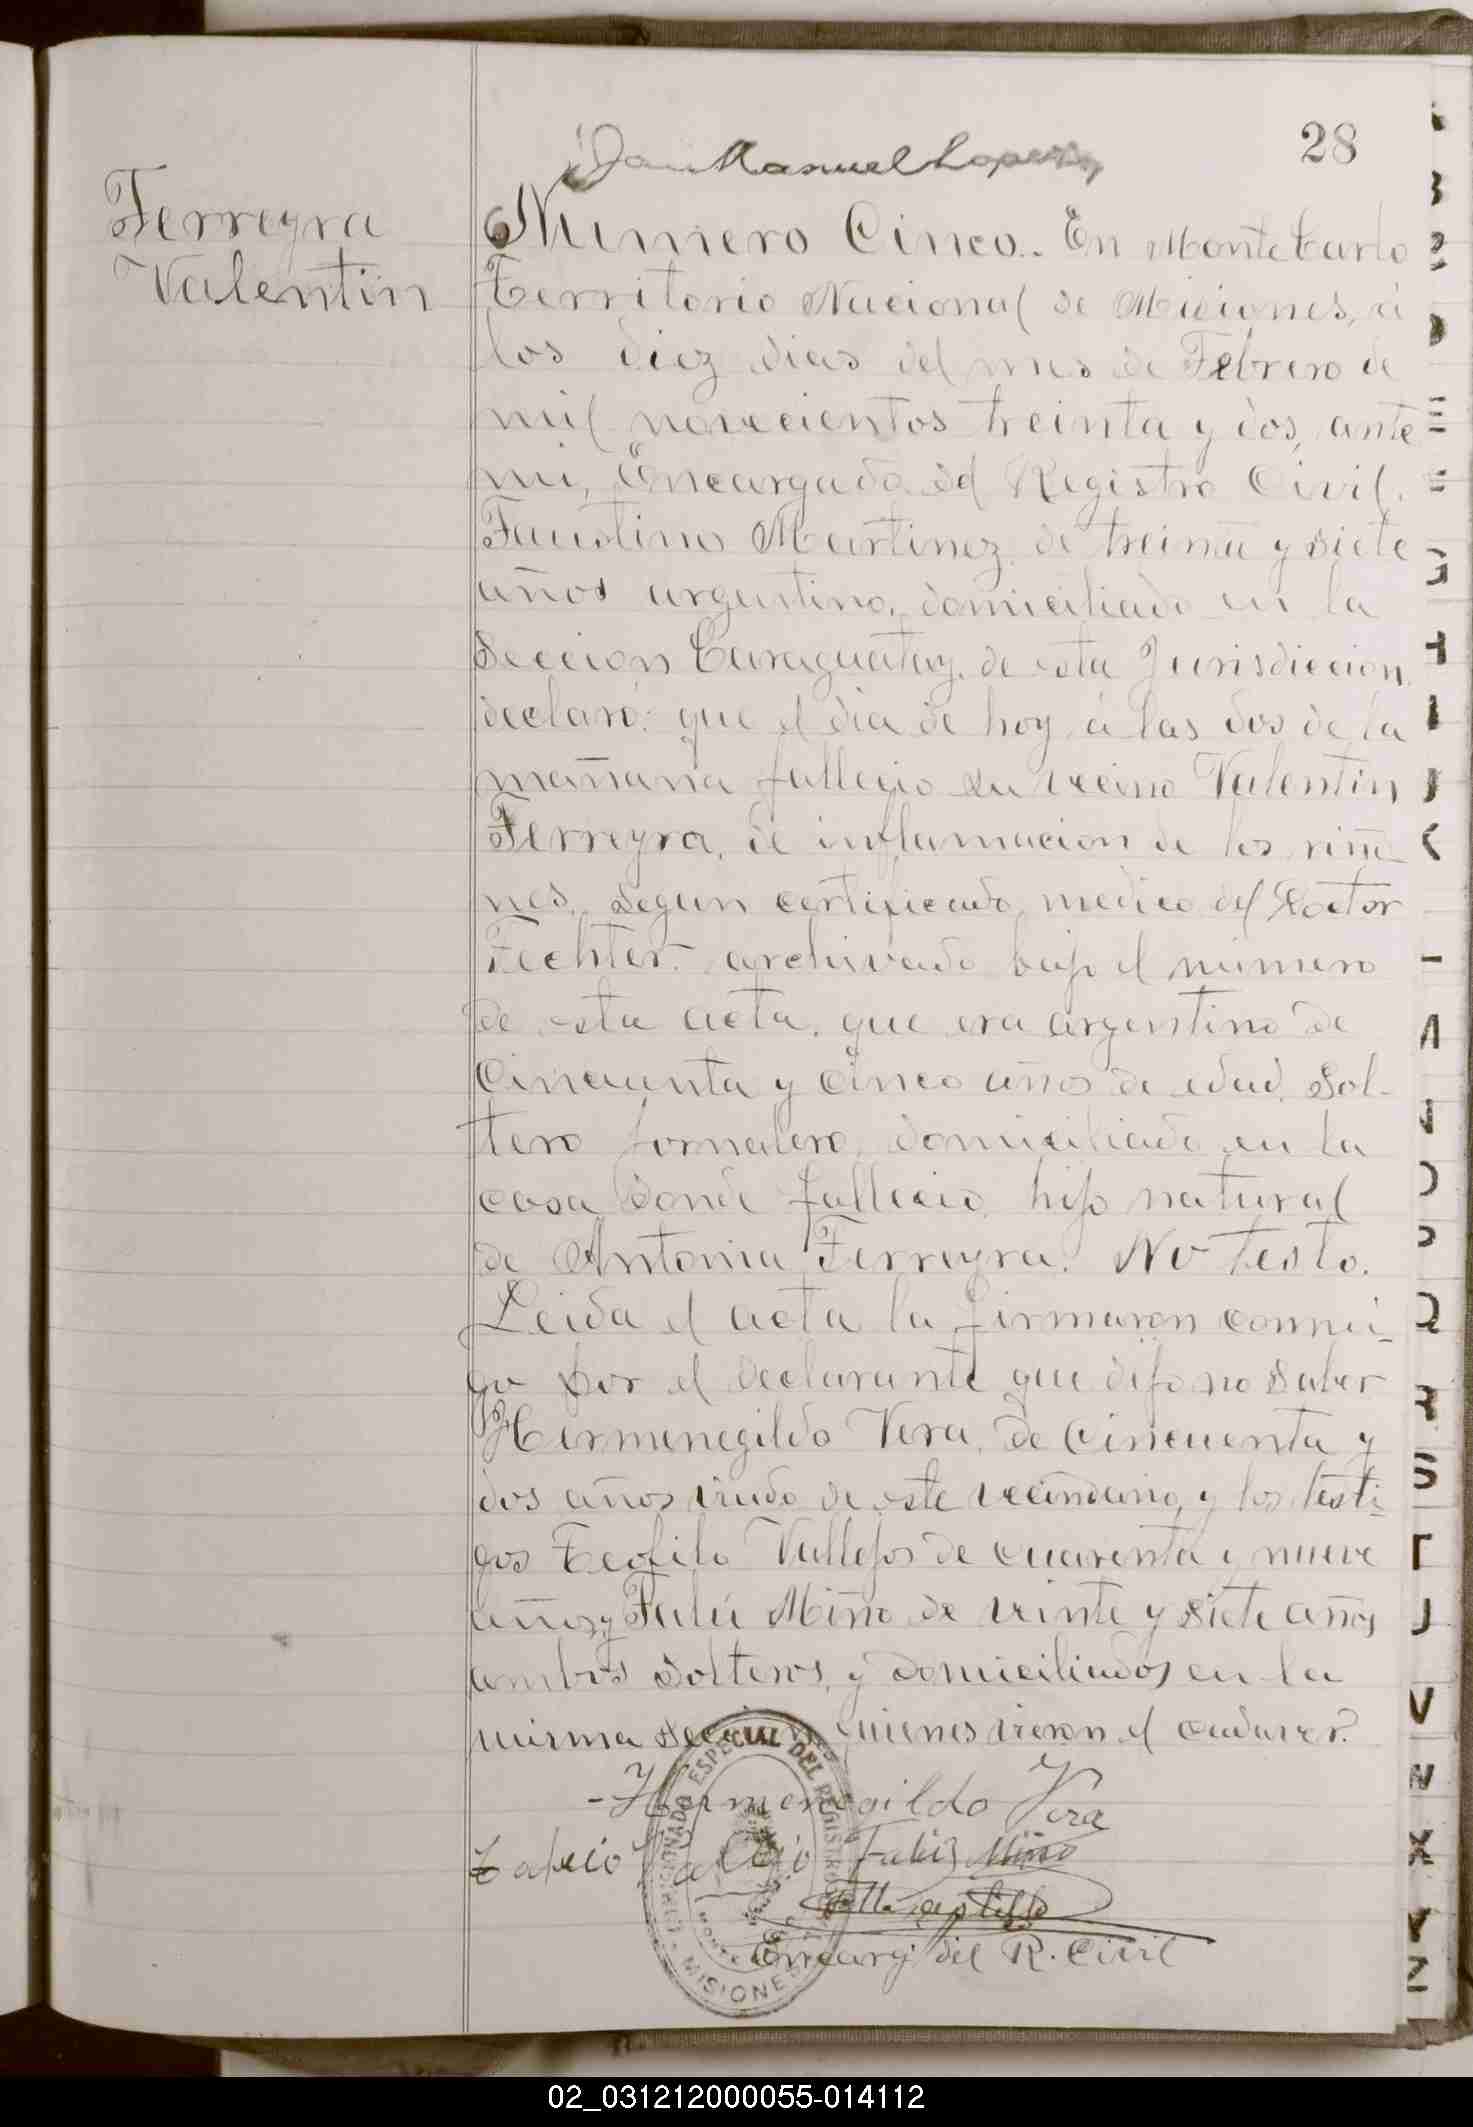 28
Manuel Lopez
Ferreyra
Valentin
Numero Cinco. En Montecarlo
Territorio Nacional de Misiones, á
los diez dias del mes de Febrero de
mil novecientos treinta y dos, ante
mi, Encargado del Registro Civil.
Faustino Martinez de treinta y siete
años argentino, domiciliado en la
Seccion Caraguatay, de esta Jurisdiccion,
declaró: que el dia de hoy á las dos de la
mañana fallecio su vecino Valentin
Ferreyra, de inflamacion de los riño-
nes, segun certificado medico del Doctor
Fechter. archivado bajo el numero
de esta acta. que era argentino de
cincuenta y cinco años de edad, sol-
tero jornalero, domiciliado en la
casa donde fallecio, hijo natural
de Antonia Ferreyra. No testo.
Leida el acta la firmaron conmi-
go por el declarante que dijo no saber
Hermenegildo Vera, de cincuenta y
dos años viudo de este vecindario, y los testi-
gos Teofilo Vallejos de cuarenta y nueve
años y Miño de veinte y siete años
ambos solteros, y domiciliados en la
misma quienes vieron el cadaver.
Hermenegildo Vera
Miño
Encarg. del R. Civil
ESPECIAL DEL REGISTRO
MISIONES
02_031212000055-014112